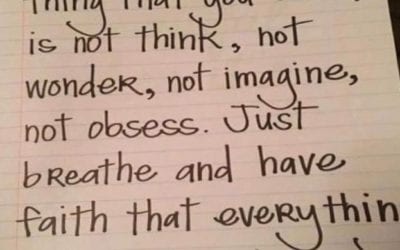 thing that you
is not think, not
wonder, not imagine,
not obsess. Just
breathe and have
faith that everythin